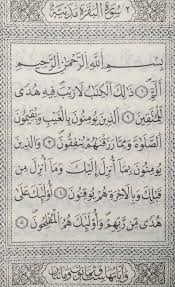 ٢ سُورَةُ الْبَقَرَةِ مَدَنِيَّةٌ
بِسْمِ اللَّهِ الرَّحْمَٰنِ الرَّحِيمِ
الٓمٓ ١ ذَٰلِكَ الْكِتَٰبُ لَا رَيْبَ فِيهِ هُدًى
لِّلْمُتَّقِينَ ٢ الَّذِينَ يُؤْمِنُونَ بِالْغَيْبِ وَيُقِيمُونَ
الصَّلَوٰةَ وَمِمَّا رَزَقْنَٰهُمْ يُنفِقُونَ ٣ وَالَّذِينَ
يُؤْمِنُونَ بِمَا أُنزِلَ إِلَيْكَ وَمَا أُنزِلَ مِن
قَبْلِكَ وَبِالْآخِرَةِ هُمْ يُوقِنُونَ ٤ أُولَٰئِكَ عَلَىٰ
هُدًى مِّن رَّبِّهِمْ وَأُولَٰئِكَ هُمُ الْمُفْلِحُونَ ٥
وآياتها